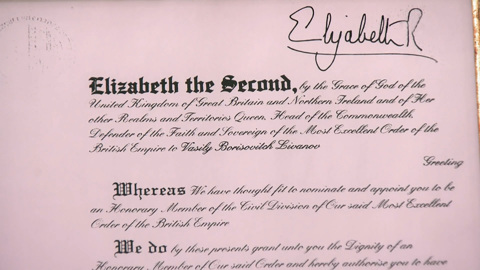 Elizabeth R
Elizabeth the Second, by the Grace of God of the
United Kingdom of Great Britain and Northern Ireland and of Her
other Realms and Territories Queen, Head of the Commonwealth,
Defender of the Faith and Sovereign of the Most Excellent Order of the
British Empire to Vasily Borisovitch Livanov
Greeting
Whereas We have thought fit to nominate and appoint you to be
an Honorary Member of the Civil Division of Our said Most Excellent
Order of the British Empire
We do by these presents grant unto you the Dignity of an
Honorary Member of Our said Order and hereby authorise you to have